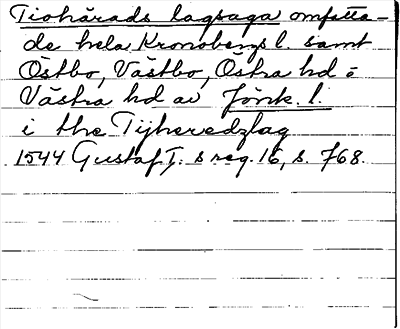 Tiohärads lagsaga omfatta-
de hela Kronobergs l. samt
Östbo, Västbo, Östra hd o
Västra hd av Jönk. l.
i the Tijheredzlag
1544 Gustaf I:s reg. 16, s. 768.